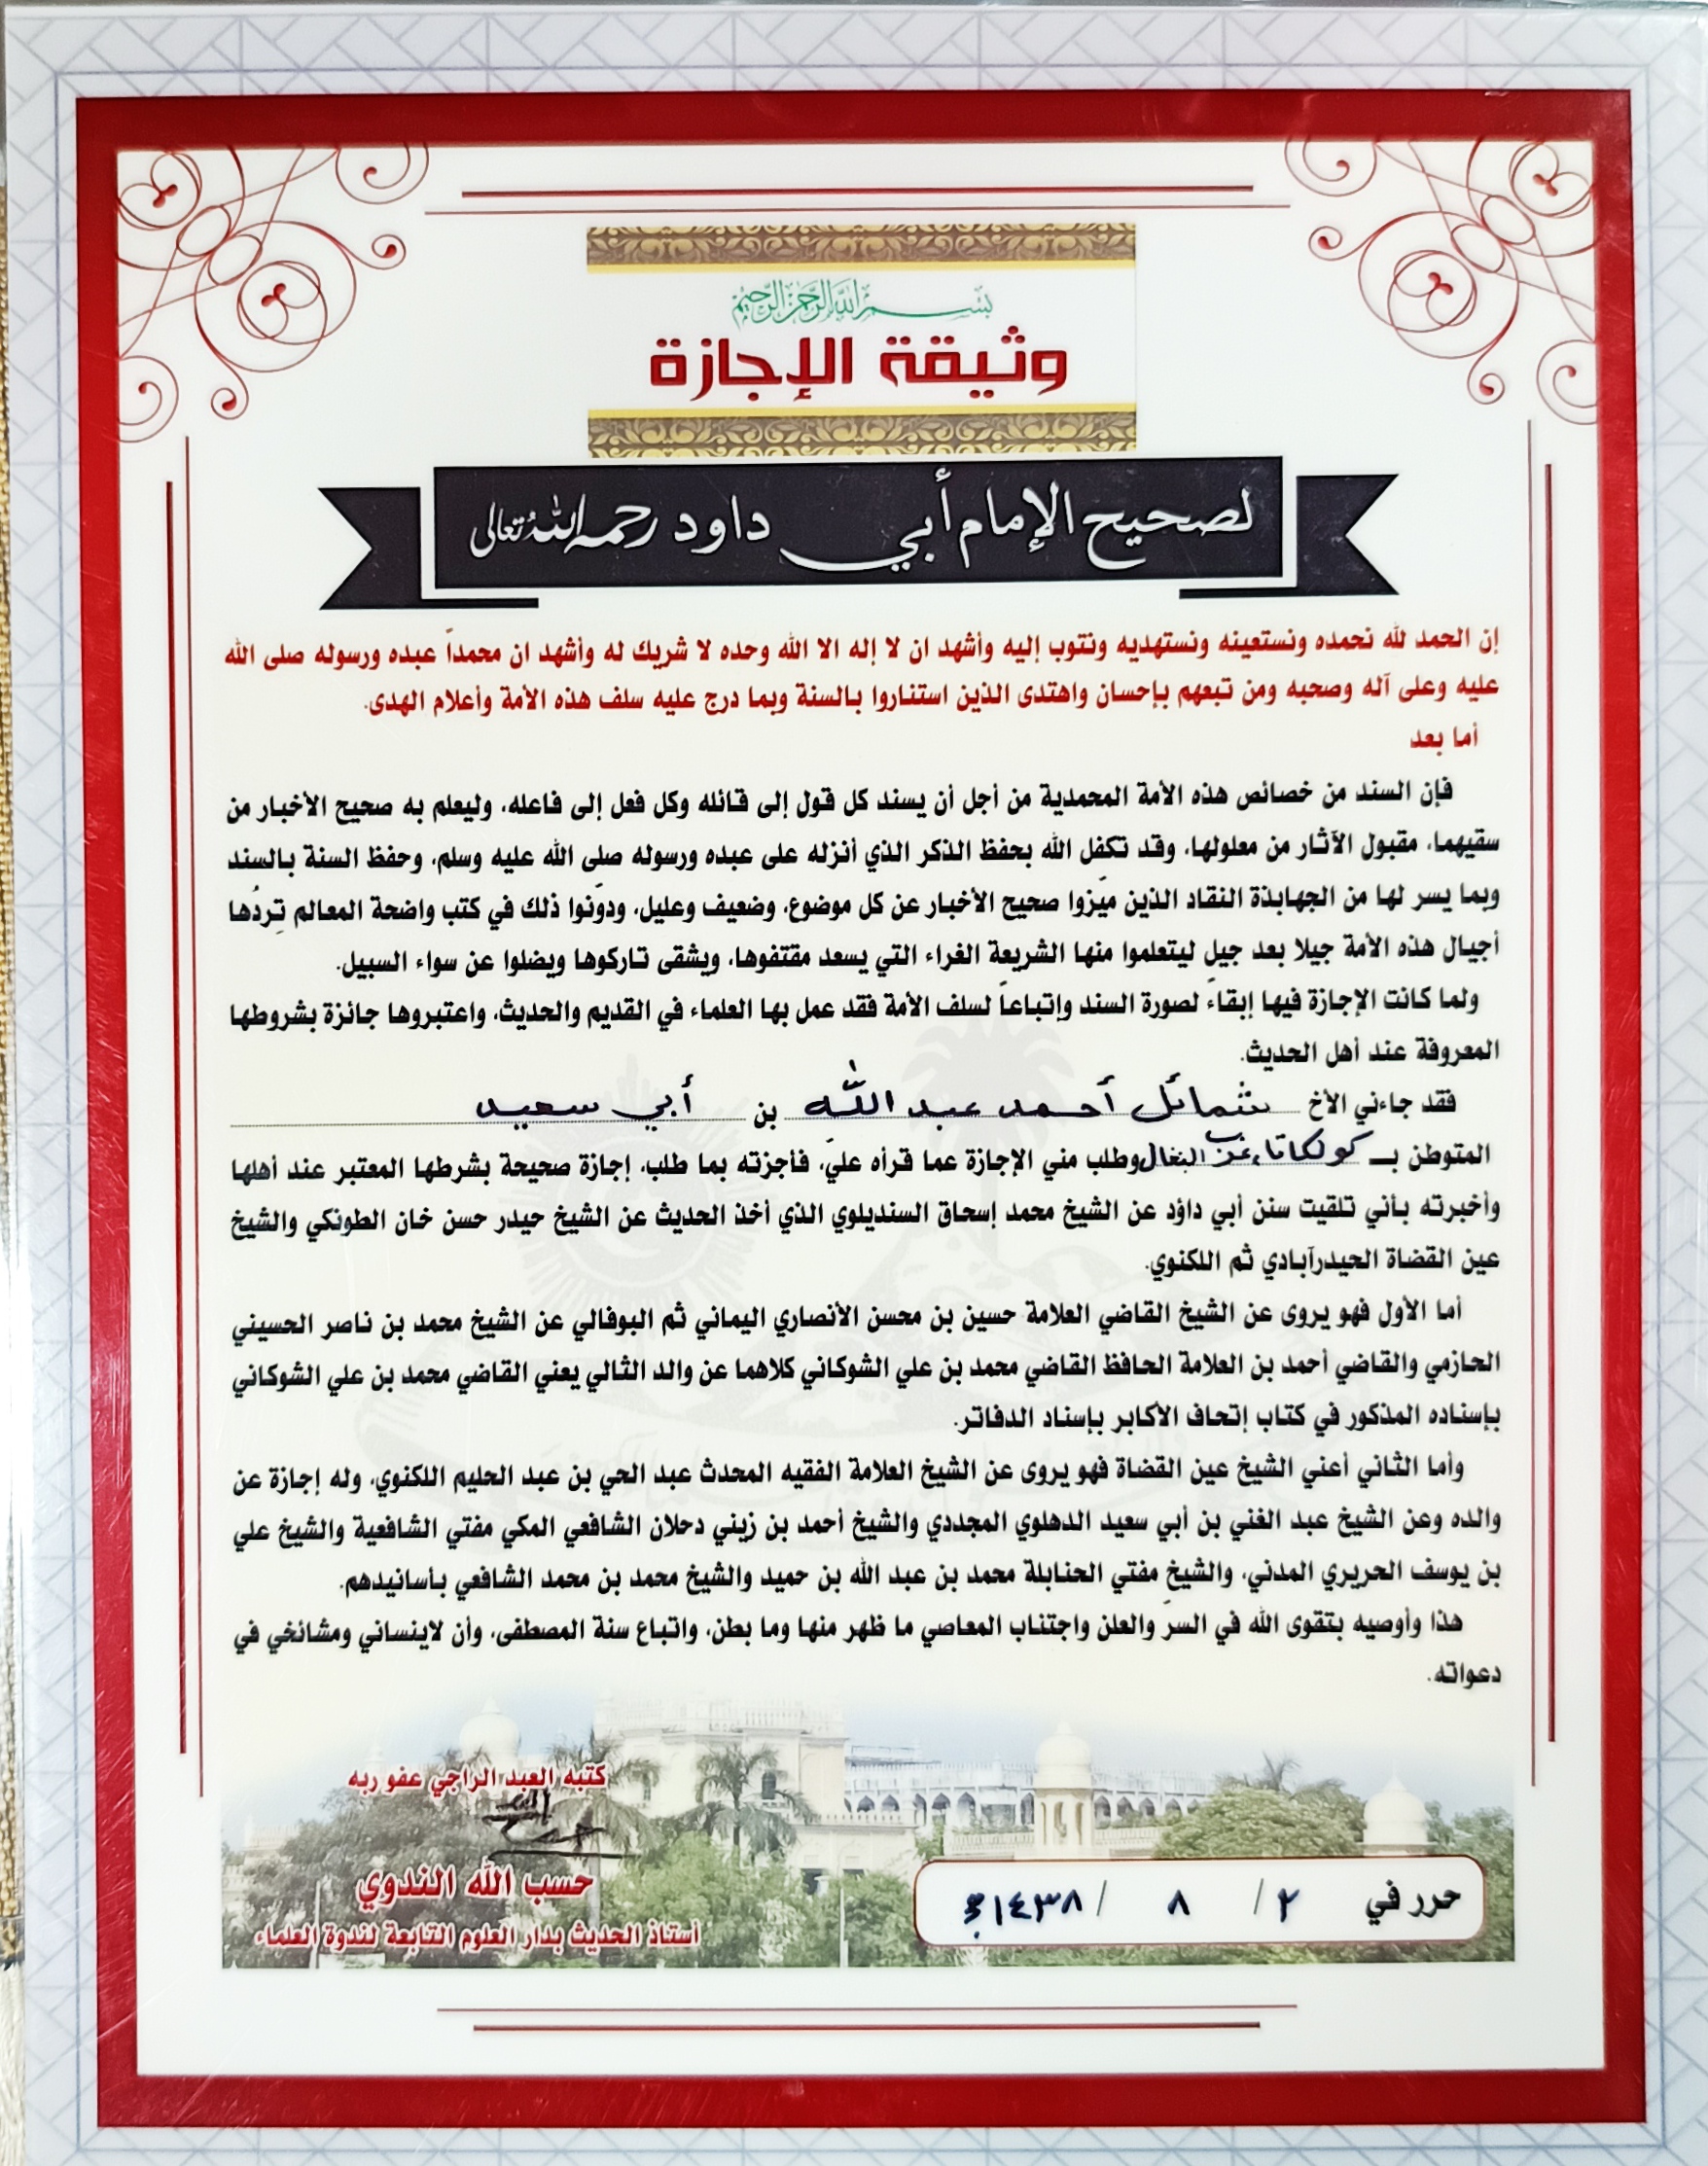 بسم الله الرحمن الرحيم
وثيقة الإجازة
لصحيح الإمام أبي داود رحمه الله تعالى
إن الحمد لله نحمده ونستعينه ونستهديه ونتوب إليه وأشهد ان لا إله الا الله وحده لا شريك له وأشهد ان محمداً عبده ورسوله صلى الله
عليه وعلى آله وصحبه ومن تبعهم بإحسان واهتدى الذين استناروا بالسنة وبما درج عليه سلف هذه الأمة وأعلام الهدى.
أما بعد
فإن السند من خصائص هذه الأمة المحمدية من أجل أن يسند كل قول إلى قائله وكل فعل إلى فاعله، وليعلم به صحيح الأخبار من
سقيهما، مقبول الآثار من معلولها، وقد تكفل الله بحفظ الذكر الذي أنزله على عبده ورسوله صلى الله عليه وسلم، وحفظ السنة بالسند
وبما يسر لها من الجهابذة النقاد الذين ميّزوا صحيح الأخبار عن كل موضوع، وضعيف وعليل، ودوّنوا ذلك في كتب واضحة المعالم تردُها
أجيال هذه الأمة جيلا بعد جيل ليتعلموا منها الشريعة الغراء التي يسعد مقتفوها، ويشقى تاركوها ويضلوا عن سواء السبيل.
ولما كانت الإجازة فيها إبقاءً لصورة السند وإتباعاً لسلف الأمة فقد عمل بها العلماء في القديم والحديث، واعتبروها جائزة بشروطها
المعروفة عند أهل الحديث.
فقد جاءني الأخ شمائل أحمد عبد الله بن أبي سعيد
المتوطن بـ كولكاتا، غرب البنغال وطلب مني الإجازة عما قرأه عليّ، فأجزته بما طلب، إجازة صحيحة بشرطها المعتبر عند أهلها
وأخبرته بأني تلقيت سنن أبي داؤد عن الشيخ محمد إسحاق السنديلوي الذي أخذ الحديث عن الشيخ حيدر حسن خان الطونكي والشيخ
عين القضاة الحيدرآبادي ثم اللكنوي.
أما الأول فهو يروى عن الشيخ القاضي العلامة حسين بن محسن الأنصاري اليماني ثم البوفالي عن الشيخ محمد بن ناصر الحسيني
الحازمي والقاضي أحمد بن العلامة الحافظ القاضي محمد بن علي الشوكاني كلاهما عن والد الثالي يعني القاضي محمد بن علي الشوكاني
بإسناده المذكور في كتاب إتحاف الأكابر بإسناد الدفاتر.
وأما الثاني أعني الشيخ عين القضاة فهو يروى عن الشيخ العلامة الفقيه المحدث عبد الحي بن عبد الحليم اللكنوي، وله إجازة عن
والده وعن الشيخ عبد الغني بن أبي سعيد الدهلوي المجددي والشيخ أحمد بن زيني دحلان الشافعي المكي مفتي الشافعية والشيخ علي
بن يوسف الحريري المدني، والشيخ مفتي الحنابلة محمد بن عبد الله بن حميد والشيخ محمد بن محمد الشافعي بأسانيدهم.
هذا وأوصيه بتقوى الله في السرّ والعلن واجتناب المعاصي ما ظهر منها وما بطن، واتباع سنة المصطفى، وأن لاينساني ومشائخي في
دعواته.
كتبه العبد الراجي عفو ربه
حسب الله الندوي
أستاذ الحديث بدار العلوم التابعة لندوة العلماء
حرر في ٢ / ٨ / ١٤٣٨ﻫ